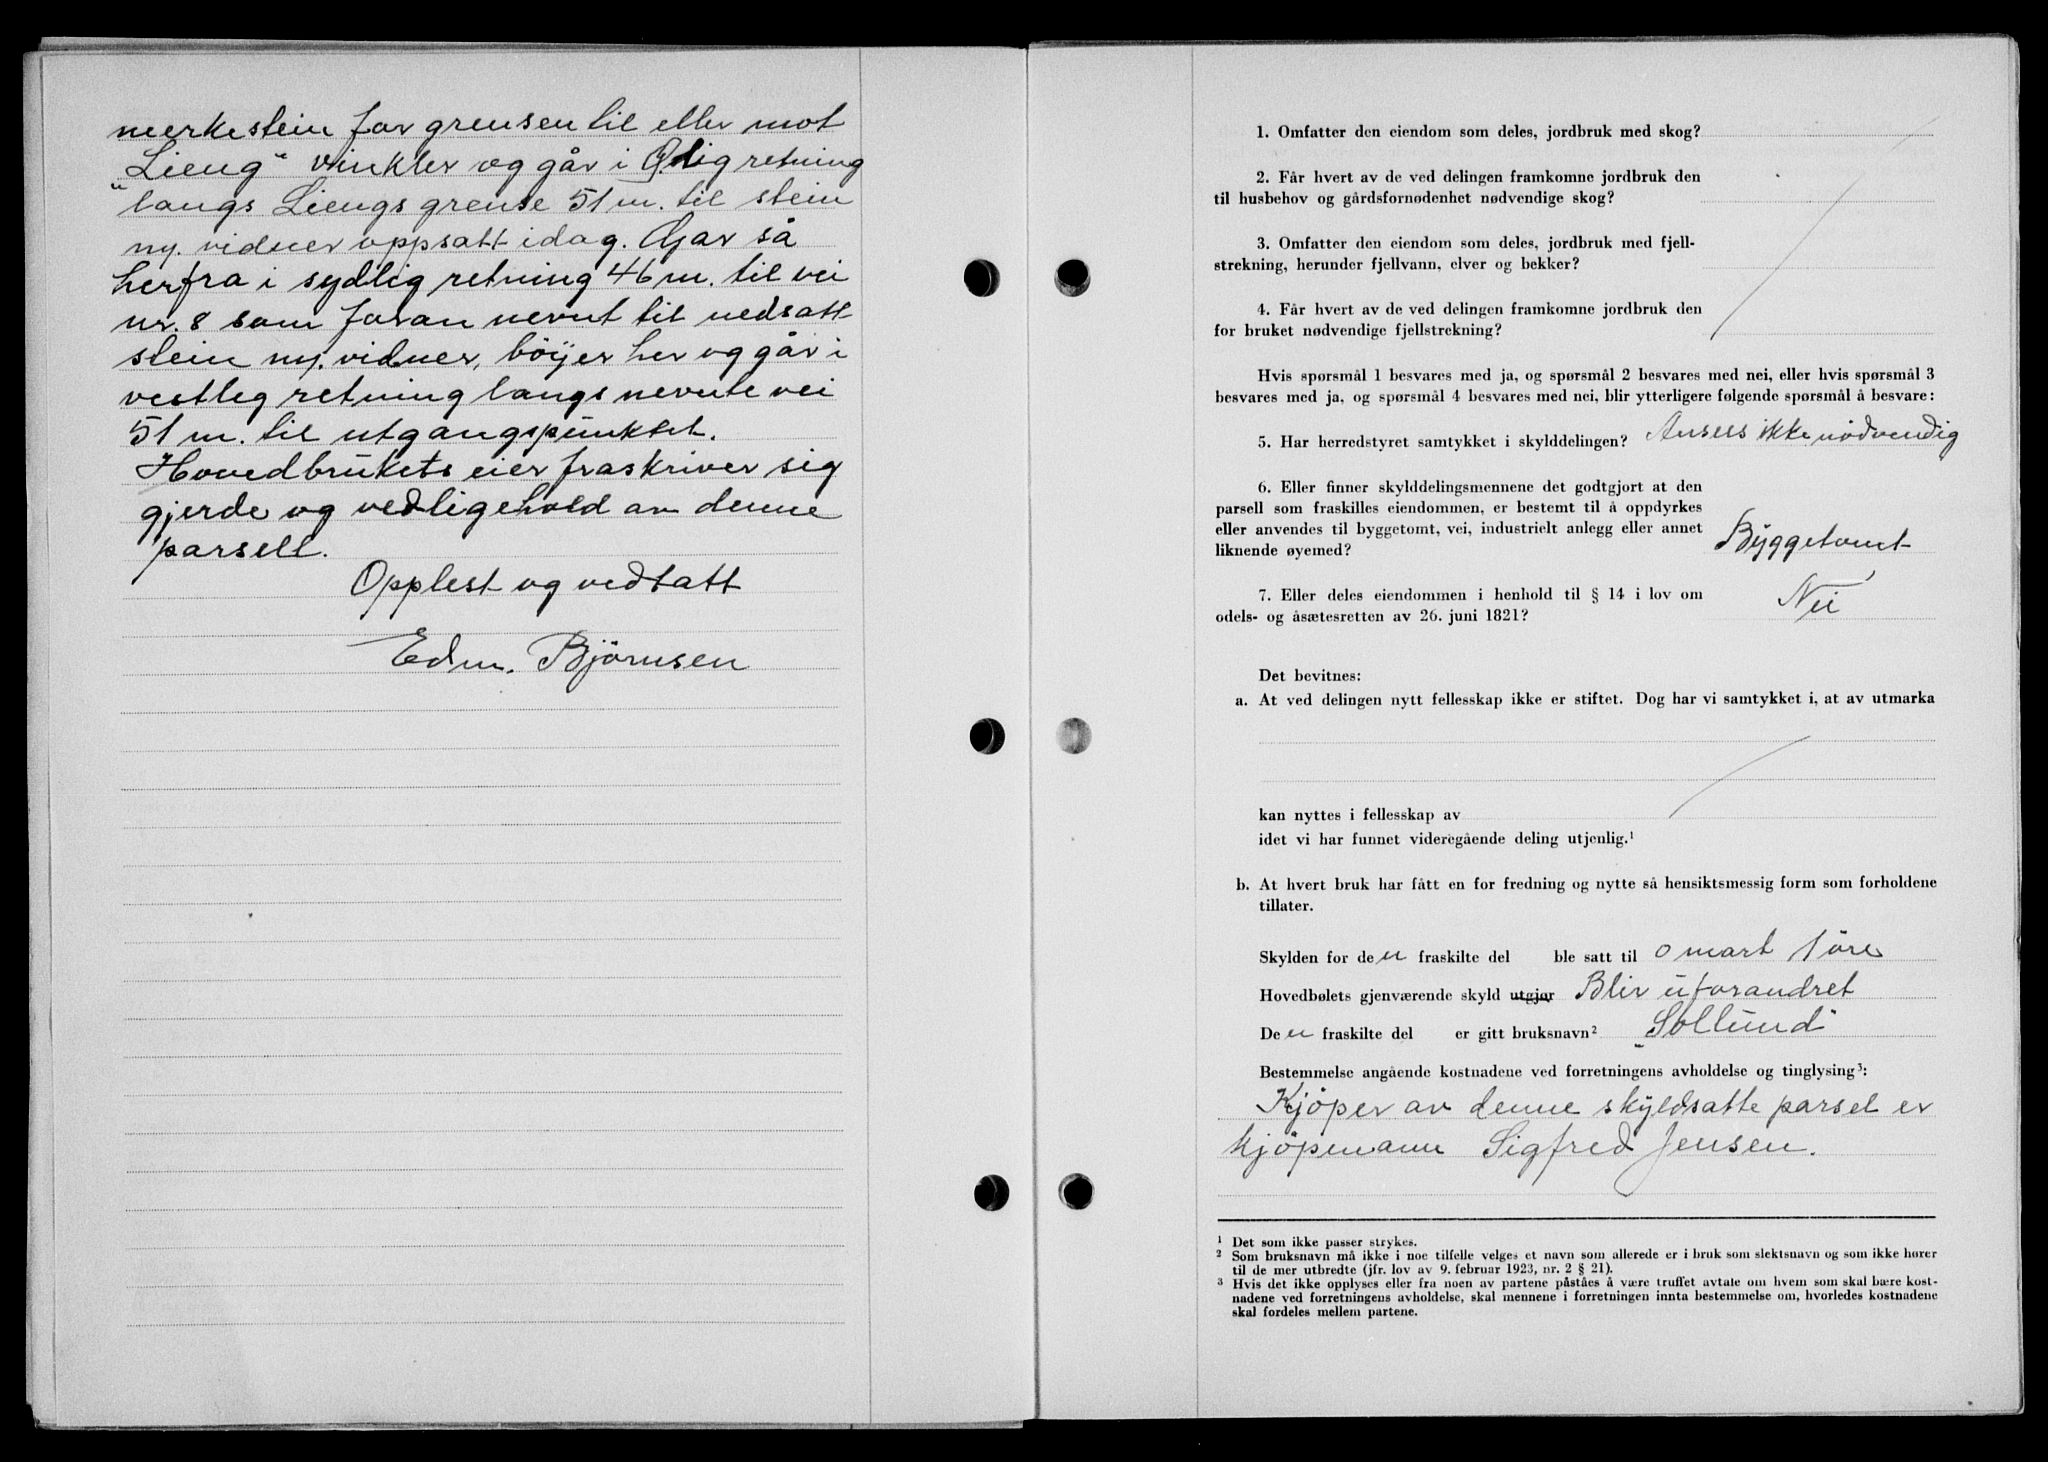 merkestein for grensen til eller mot
"Lieng" vinkler og går i Ø.lig retning
langs Liengs grense 51 m. til stein
m. vidner oppsatt idag. Går så
herfra i sydlig retning 46 m. til vei
nr. 8 som foran nevnt til nedsatt
stein m. vidner, böijer her og går i
vestleg retning langs nevnte vei
51 m. til utgangspunktet.
Hovedbrukets eier fraskriver sig
gjerde og vedligehold av denne
parsell.
Opplest og vedtatt
Edm. Björnsen
1. Omfatter den eiendom som deles, jordbruk med skog?
2. Får hvert av de ved delingen framkomne jordbruk den
til husbehov og gårdsfornødenhet nødvendige skog?
3. Omfatter den eiendom som deles, jordbruk med fjell-
strekning, herunder fjellvann, elver og bekker?
4. Får hvert av de ved delingen framkomne jordbruk den
for bruket nødvendige fjellstrekning?
Hvis spørsmål 1 besvares med ja, og spørsmål 2 besvares med nei, eller hvis spørsmål 3
besvares med ja, og spørsmål 4 besvares med nei, blir ytterligere følgende spørsmål å besvare:
5. Har herredstyret samtykket i skylddelingen? Ansees ikke nödvendig
6. Eller finner skylddelingsmennene det godtgjort at den
parsell som fraskilles eiendommen, er bestemt til å oppdyrkes
eller anvendes til byggetomt, vei, industrielt anlegg eller annet
liknende øyemed? Byggetomt
7. Eller deles eiendommen i henhold til § 14 i lov om
odels- og åsætesretten av 26. juni 1821? Nei
Det bevitnes:
a. At ved delingen nytt fellesskap ikke er stiftet. Dog har vi samtykket i, at av utmarka
kan nyttes i fellesskap av
idet vi har funnet videregående deling utjenlig.¹
b. At hvert bruk har fått en for fredning og nytte så hensiktsmessig form som forholdene
tillater.
Skylden for den fraskilte del ble satt til 0 mark 1 öre
Hovedbølets gjenværende skyld utgjør Blir uforandret
Den fraskilte del er gitt bruksnavn² "Sollund"
Bestemmelse angående kostnadene ved forretningens avholdelse og tinglysing³:
Kjöper av denne skyldsatte parsel er
kjöpmann Sigfred Jensen.
¹ Det som ikke passer strykes.
² Som bruksnavn må ikke i noe tilfelle velges et navn som allerede er i bruk som slektsnavn og som ikke hører
til de mer utbredte (jfr. lov av 9. februar 1923, nr. 2 § 21).
³ Hvis det ikke opplyses eller fra noen av partene påståes å være truffet avtale om hvem som skal bære kost-
nadene ved forretningens avholdelse, skal mennene i forretningen innta bestemmelse om, hvorledes kostnadene
skal fordeles mellem partene.